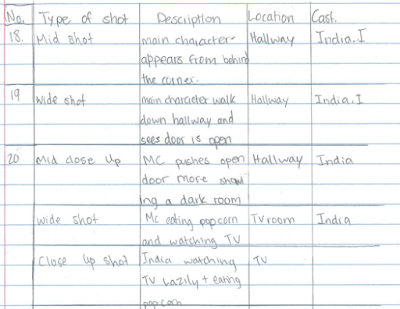 No. Type of shot Description Location Cast.
18. Mid shot main character Hallway India.I
appears from behind
the corner.
19 Wide shot main character walk Hallway India.I
down hallway and
sees door is open
20 Mid close Up MC pushes open Hallway India
door more show
ing a dark room
wide shot Mc eating popcorn TV room India
and watching TV
Close up shot India watching TV
TV lazily + eating
popcorn